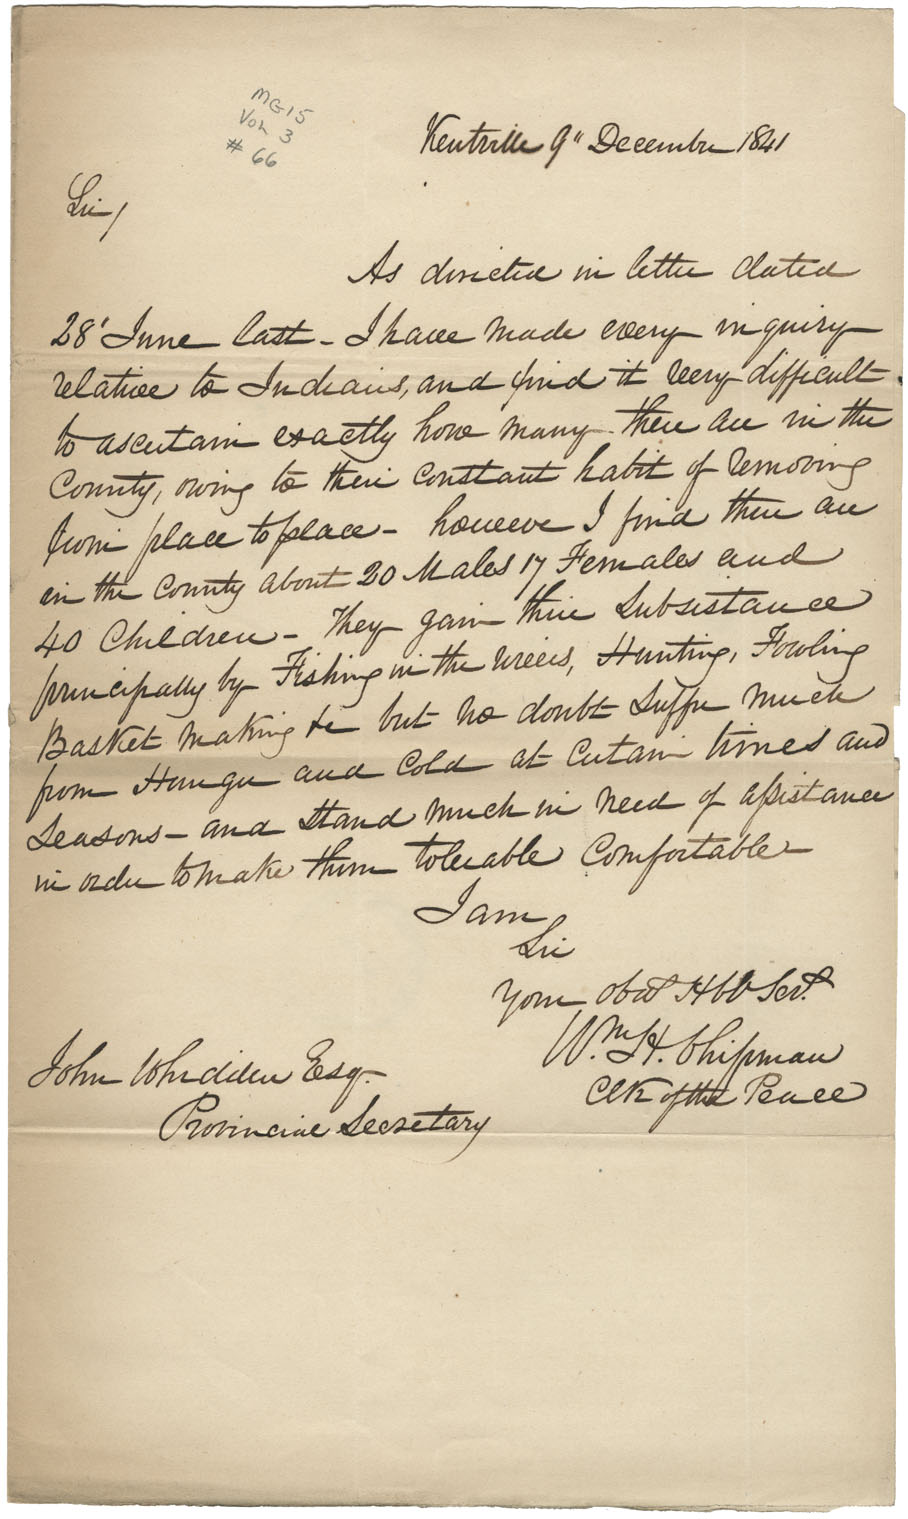 MG15
Vol 3
# 66
Kentville 9" December 1841
Sir/
As directed in letter dated
28' June last - I have made every inquiry
relative to Indians, and find it very difficult
to ascertain exactly how many there are in the
County, owing to their constant habit of removing
from place to place - however I find there are
in the County about 20 Males 17 Females and
40 Children - They gain their Subsistance
principally by Fishing in the rivers, Hunting, Fowling
Basket making &c but no doubt Suffer much
from Hunger and Cold at Certain times and
Seasons - and Stand much in need of assistance
in order to make them tolerable Comfortable
I am
Sir
Your obdt Hbl Servt.
Wm. H. Chipman
Clk of the Peace
John Whidden Esq.
Provincial Secretary